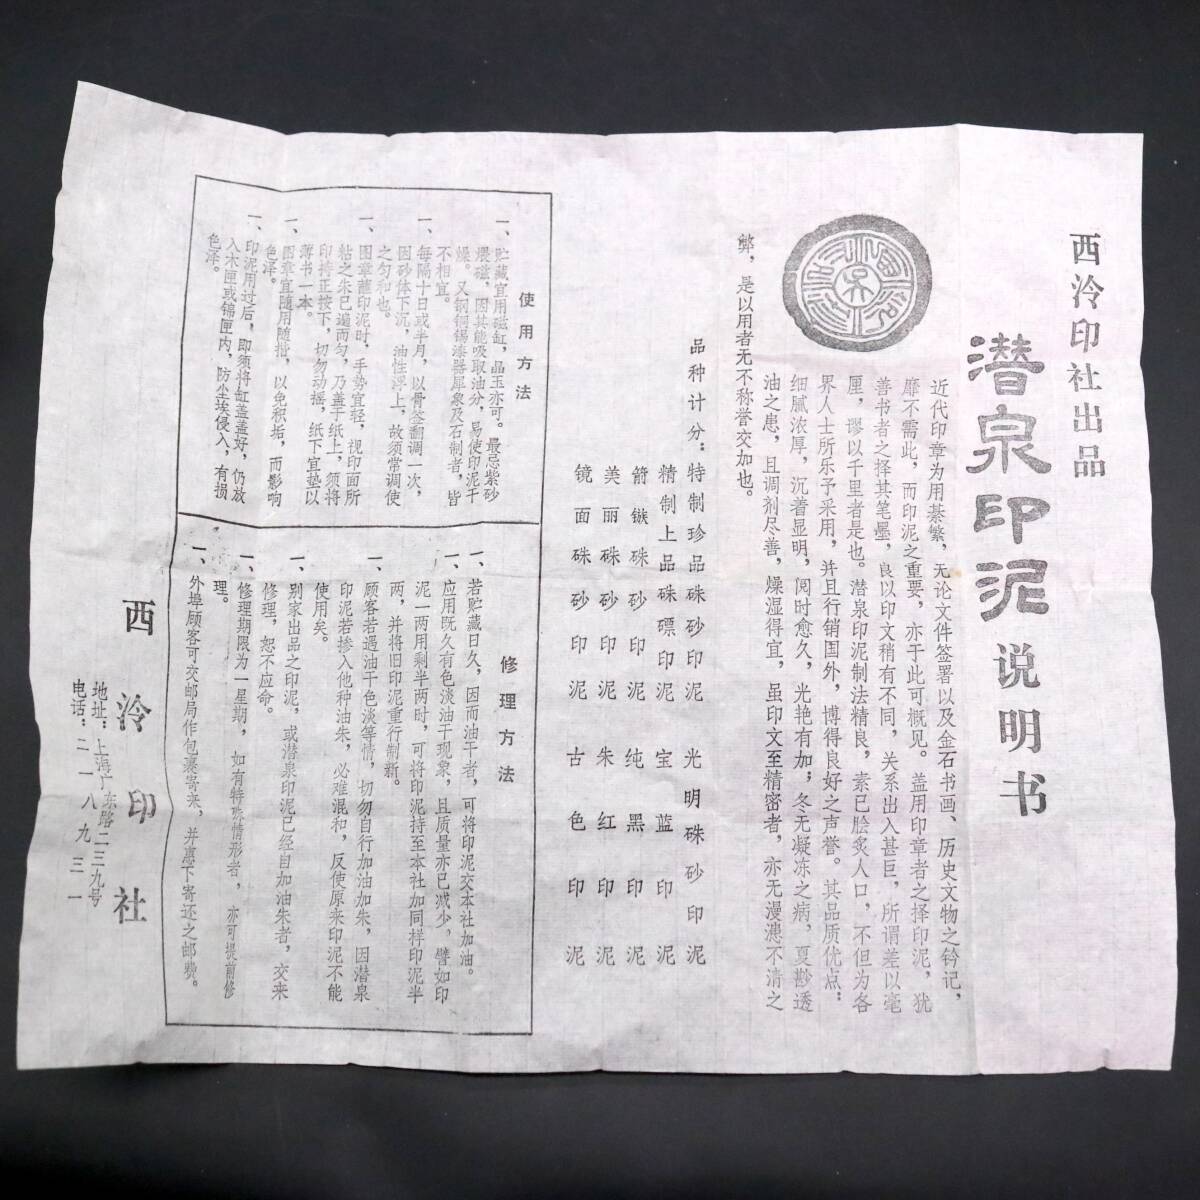 西泠印社出品
潜泉印泥说明书
近代印章为用綦繁，无论文件签署以及金石书画、历史文物之钤记，
靡不需此，而印泥之重要，亦于此可概见。盖用印章者之择印泥，犹
善书者之择其笔墨，良以印文稍有不同，关系出入甚巨，所谓差以毫
厘，谬以千里者是也。潜泉印泥制法精良，素已脍炙人口，不但为各
界人士所乐予采用，并且行销国外，博得良好之声誉。其品质优点：
细腻浓厚，沉着显明，阅时愈久，光艳有加；冬无凝冻之病，夏尠透
油之患，且调剂尽善，燥湿得宜，虽印文至精密者，亦无漫漶不清之
弊，是以用者无不称誉交加也。
品种计分：特制珍品硃砂印泥 光明硃砂印泥
精制上品硃磦印泥 宝蓝印泥
箭镞硃砂印泥 纯黑印泥
美丽硃砂印泥 朱红印泥
镜面硃砂印泥 古色印泥
使用方法
一、贮藏宜用磁缸，晶玉亦可。最忌紫砂
煨磁，因其能吸取油分，易使印泥干
燥。又钢铜锡漆器犀象及石制者，皆
不相宜。
一、每隔十日或半月，以骨签翻调一次，
因砂体下沉，油性浮上，故须常调使
之匀和也。
一、图章蘸印泥时，手势宜轻，视印面所
粘之朱已遍而匀，乃盖于纸上，须将
印持正按下，切勿动摇，纸下宜垫以
薄书一本。
一、图章宜随用随揩，以免积垢，而影响
色泽。
一、印泥用过后，即须将缸盖盖好，仍放
入木匣或锦匣内，防尘埃侵入，有损
色泽。
修理方法
一、若贮藏日久，因而油干者，可将印泥交本社加油。
一、应用既久有色淡油干现象，且质量亦已减少，譬如印
泥一两用剩半两时，可将印泥持至本社加同样印泥半
两，并将旧印泥重行制新。
一、顾客若遇油干色淡等情，切勿自行加油加朱，因潜泉
印泥若掺入他种油朱，必难混和，反使原来印泥不能
使用矣。
一、别家出品之印泥，或潜泉印泥已经自加油朱者，交来
修理，恕不应命。
一、修理期限为一星期，如有特殊情形者，亦可提前修
理。
一、外埠顾客可交邮局作包裹寄来，并惠下寄还之邮费。
西泠印社
地址：上海广东路二三九号
电话：二一八九三一